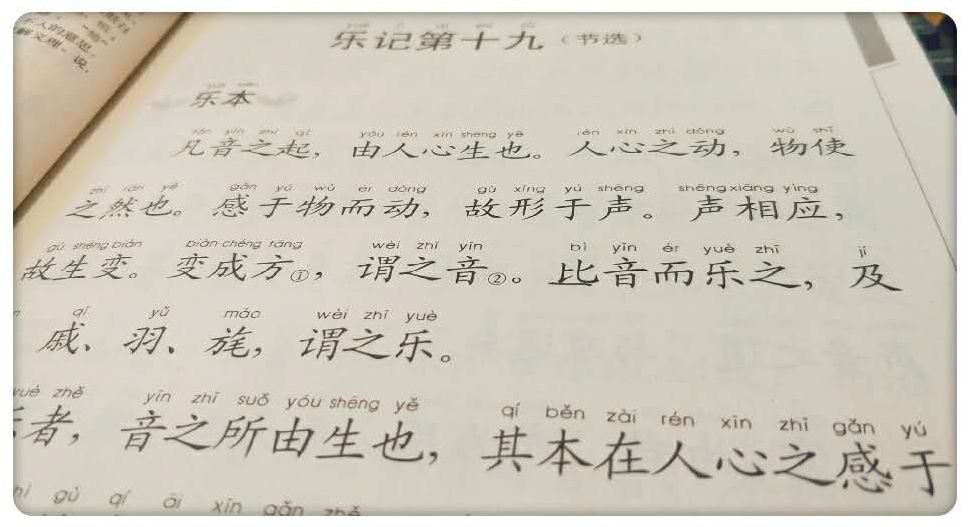 乐记第十九（节选）
乐本
fán yīn zhī qǐ yóu rén xīn shēng yě rén xīn zhī dòng wù shǐ
凡音之起，由人心生也。人心之动，物使
zhī rán yě gǎn yú wù ér dòng gù xíng yú shēng shēng xiāng yìng
之然也。感于物而动，故形于声。声相应，
gù shēng biàn biàn chéng fāng wèi zhī yīn bǐ yīn ér yuè zhī jí
故生变。变成方①，谓之音②。比音而乐之，及
qī yǔ máo wèi zhī yuè
戚、羽、旄，谓之乐。
yuè zhě yīn zhī suǒ yóu shēng yě qí běn zài rén xīn zhī gǎn yú
者，音之所由生也，其本在人心之感于
gù qí āi xīn gǎn zhě